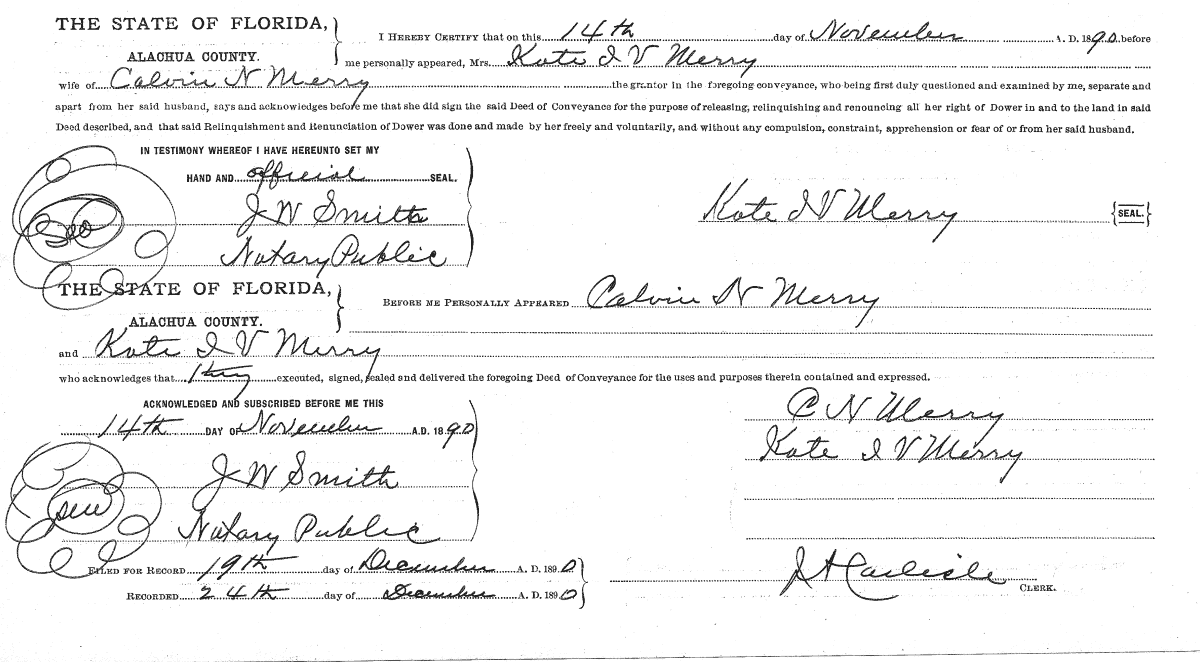 THE STATE OF FLORIDA,
ALACHUA COUNTY.
I HEREBY CERTIFY that on this 14th day of November A. D. 1890 before
me personally appeared, Mrs. Kate I V Merry
wife of Calvin N Merry the grantor in the foregoing conveyance, who being first duly questioned and examined by me, separate and
apart from her said husband, says and acknowledges before me that she did sign the said Deed of Conveyance for the purpose of releasing, relinquishing and renouncing all her right of Dower in and to the land in said
Deed described, and that said Relinquishment and Renunciation of Dower was done and made by her freely and voluntarily, and without any compulsion, constraint, apprehension or fear of or from her said husband.
IN TESTIMONY WHEREOF I HAVE HEREUNTO SET MY
HAND AND official SEAL.
J W Smith
Notary Public
Kate I V Merry {SEAL.}
THE STATE OF FLORIDA,
ALACHUA COUNTY.
BEFORE ME PERSONALLY APPEARED Calvin N Merry
and Kate I V Merry
who acknowledges that they executed, signed, sealed and delivered the foregoing Deed of Conveyance for the uses and purposes therein contained and expressed.
ACKNOWLEDGED AND SUBSCRIBED BEFORE ME THIS
14th DAY OF November A.D. 1890
J W Smith
Notary Public
C N Merry
Kate I V Merry
FILED FOR RECORD 19th day of December A. D. 1890
RECORDED 24th day of December A. D. 1890
J A Carlisle
CLERK.